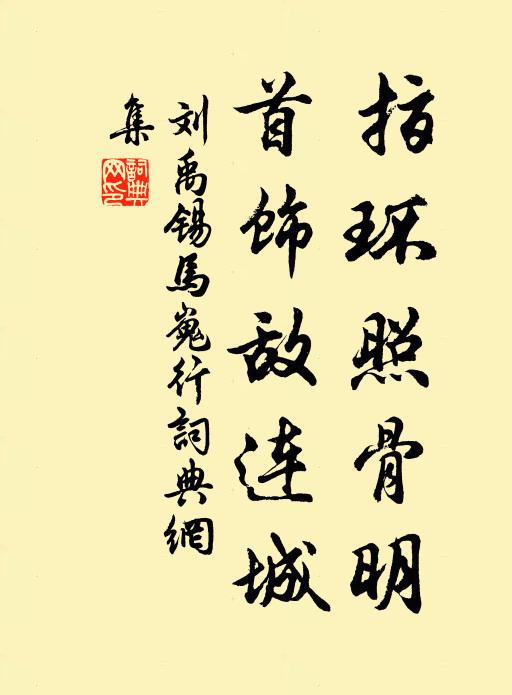 指环照骨明
首饰敌连城
刘禹锡馬嵬行詞典網
集
詞典網印